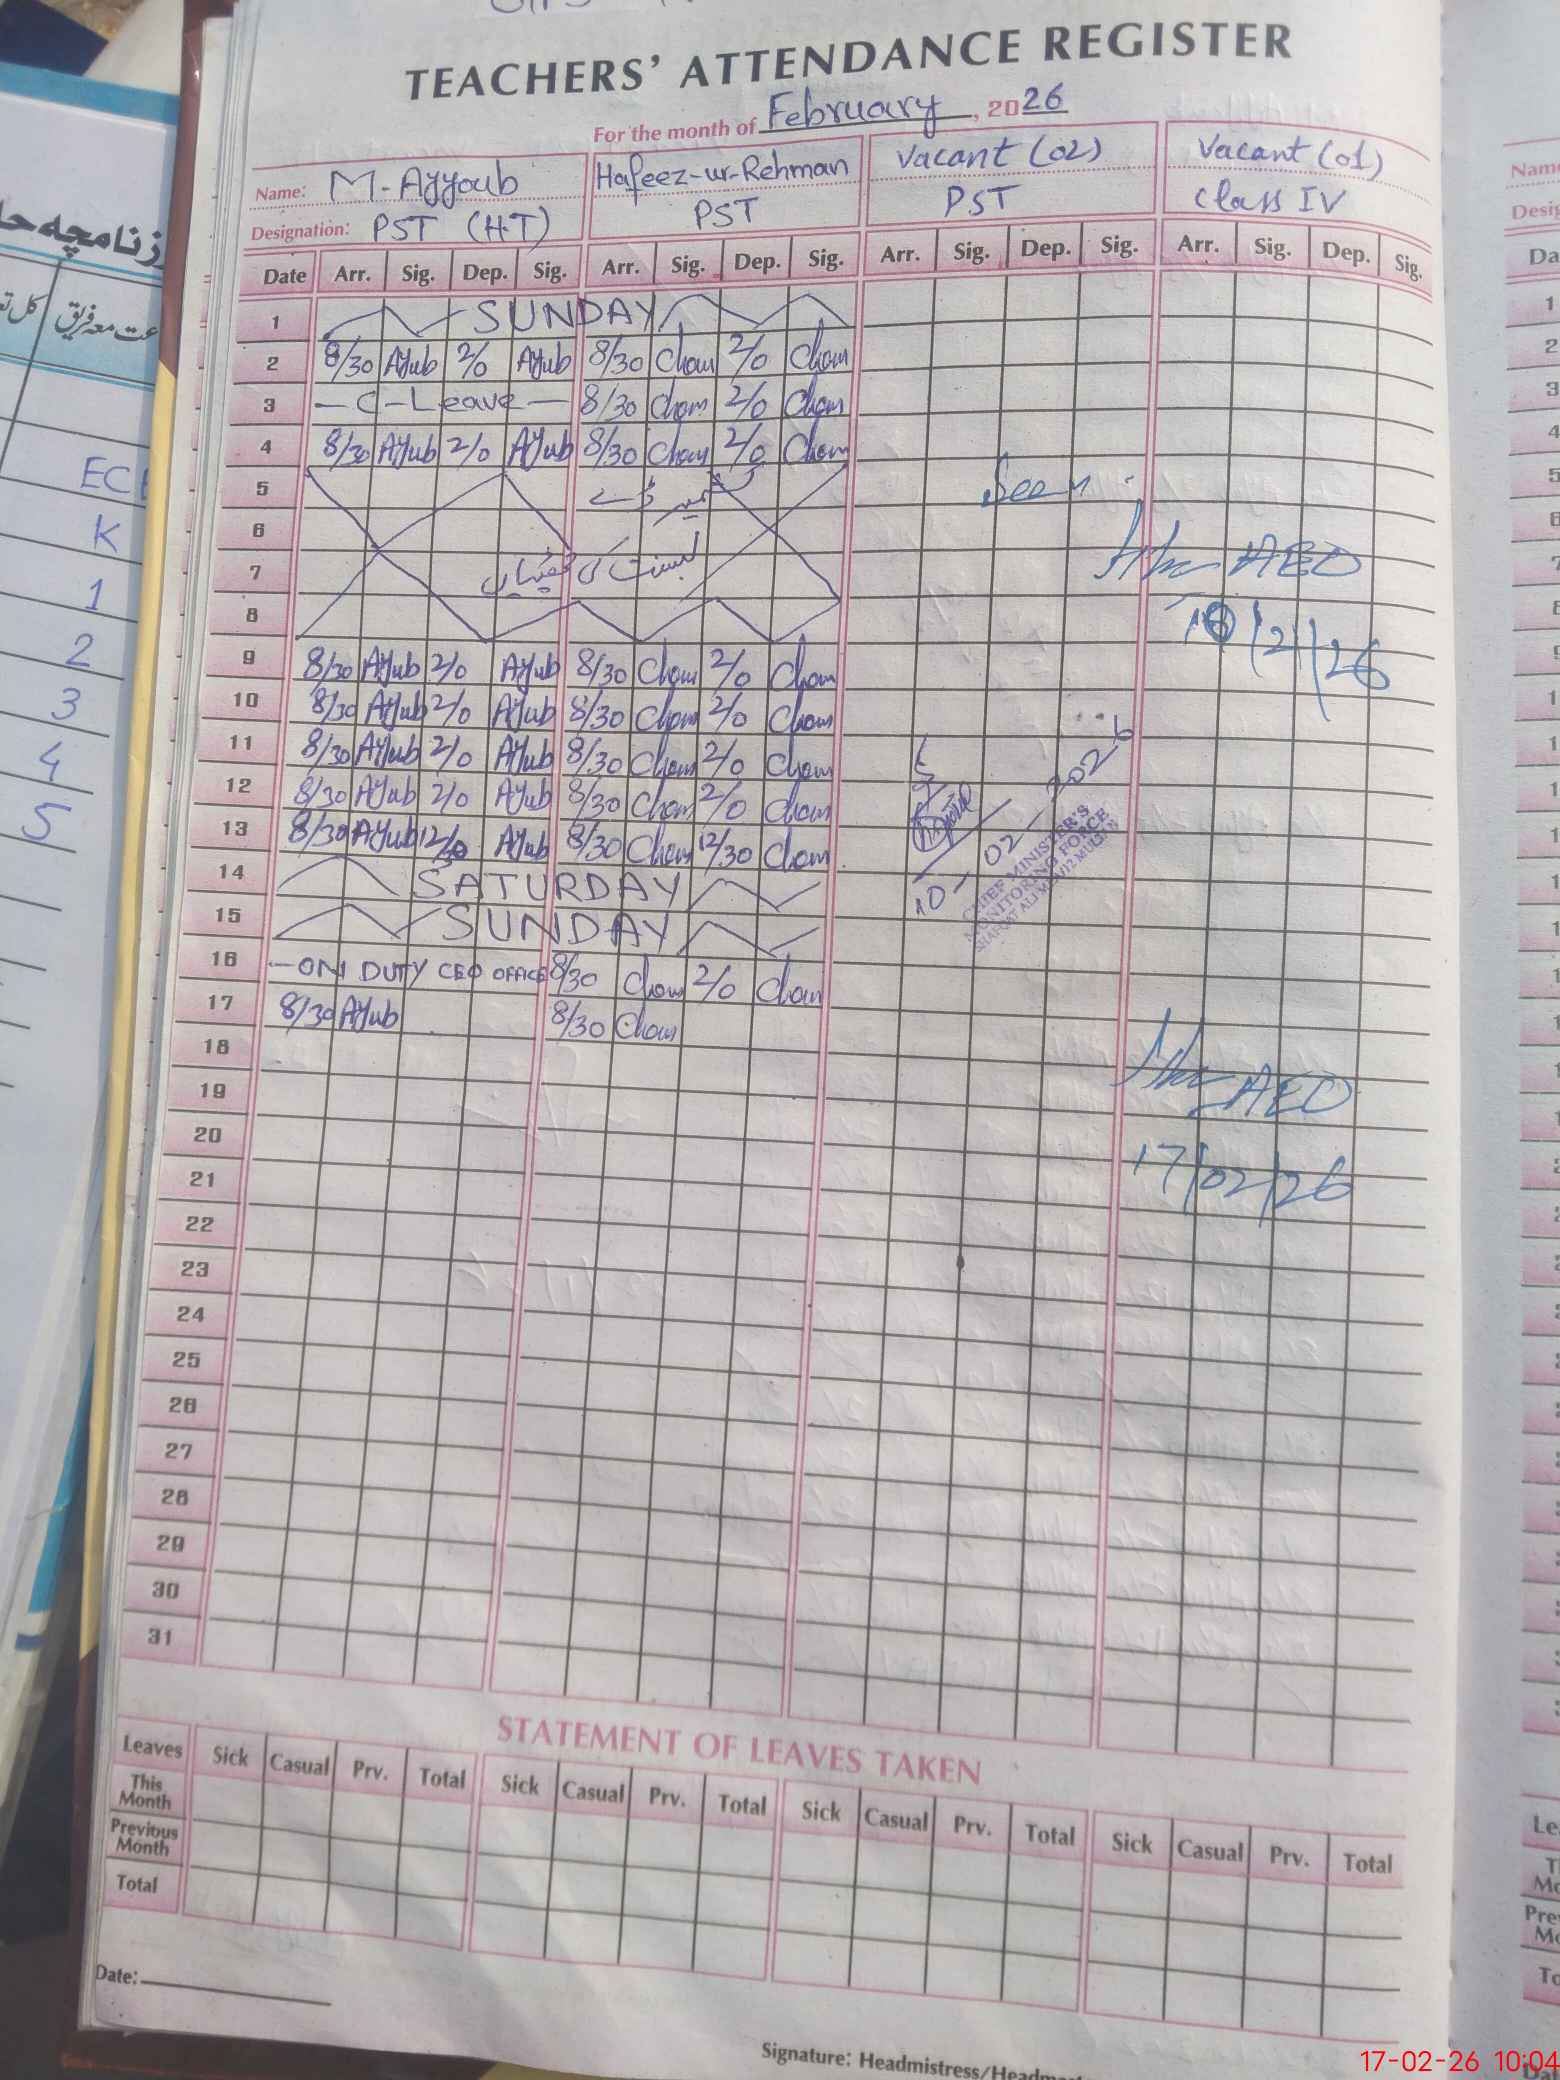 TEACHERS' ATTENDANCE REGISTER
For the month of February, 2026
Name: M-Ayyoub Hafeez-ur-Rehman Vacant (02) Vacant (01)
Designation: PST (H.T) PST PST Class IV
Date Arr. Sig. Dep. Sig. Arr. Sig. Dep. Sig. Arr. Sig. Dep. Sig. Arr. Sig. Dep. Sig.
1 SUNDAY
2 8/30 AYub 2/0 AYub 8/30 Cham 2/0 Cham
3 - C - Leave - 8/30 Cham 2/0 Cham
4 8/30 AYub 2/0 AYub 8/30 Cham 2/0 Cham
5 کشمیر ڈے Seen
6
7 بسنت کی چھٹیاں AEO
8 /2/26
9 8/30 AYub 2/0 AYub 8/30 Cham 2/0 Cham
10 8/30 AYub 2/0 AYub 8/30 Cham 2/0 Cham
11 8/30 AYub 2/0 AYub 8/30 Cham 2/0 Cham
12 8/30 AYub 2/0 AYub 8/30 Cham 2/0 Cham
13 8/30 AYub AYub 8/30 Cham 12/30 Cham
10-02-2026
CHIEF MINISTER'S
MONITORING FORCE
14 SATURDAY
15 SUNDAY
16 - ON DUTY CEO OFFICE 8/30 Cham 2/0 Cham
17 8/30 AYub 8/30 Cham
18
19 AEO
20
21 17/02/26
22
23
24
25
26
27
28
29
30
31
STATEMENT OF LEAVES TAKEN
Leaves Sick Casual Prv. Total Sick Casual Prv. Total Sick Casual Prv. Total Sick Casual Prv. Total
This Month
Previous Month
Total
Date:
Signature: Headmistress/
ECE
K
1
2
3
4
5
17-02-26 10:04